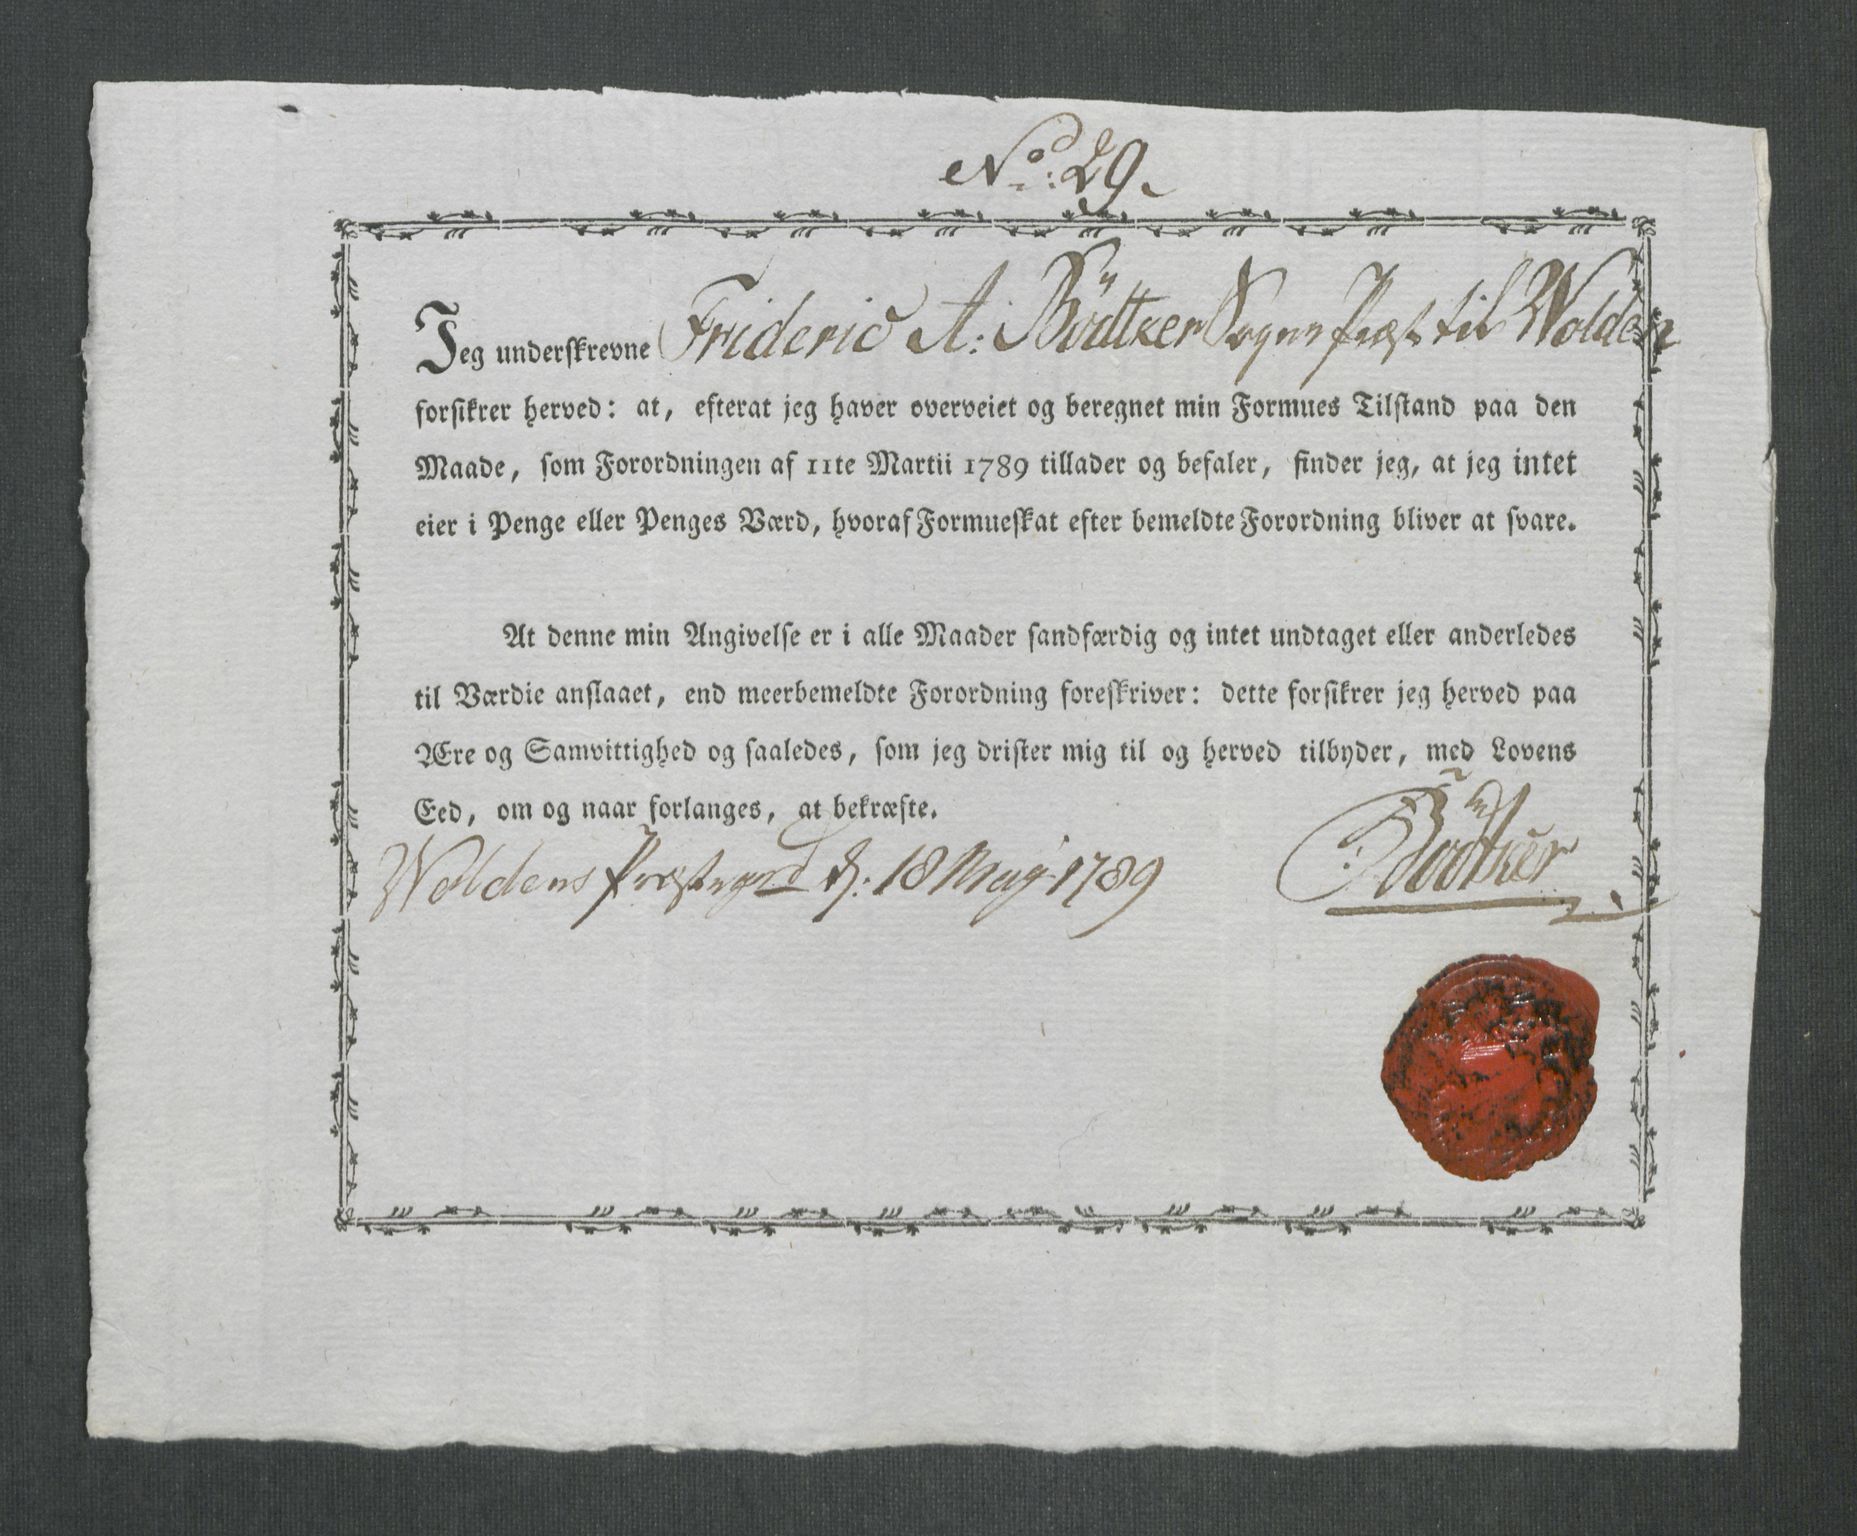 No: 29.
Jeg underskrevne Frideric A: Bödtker Sogne Præst til Wolden
forsikrer herved: at, efterat jeg haver overveiet og beregnet min Formues Tilstand paa den
Maade, som Forordningen af 11te Martii 1789 tillader og befaler, finder jeg, at jeg intet
eier i Penge eller Penges Værd, hvoraf Formueskat efter bemeldte Forordning bliver at svare.
At denne min Angivelse er i alle Maader sandfærdig og intet undtaget eller anderledes
til Værdie anslaaet, end meerbemeldte Forordning foreskriver: dette forsikrer jeg herved paa
Ære og Samvittighed og saaledes, som jeg drister mig til og herved tilbyder, med Lovens
Eed, om og naar forlanges, at bekræfte.
Woldens Præstegrd d: 18 May 1789
Bödtker